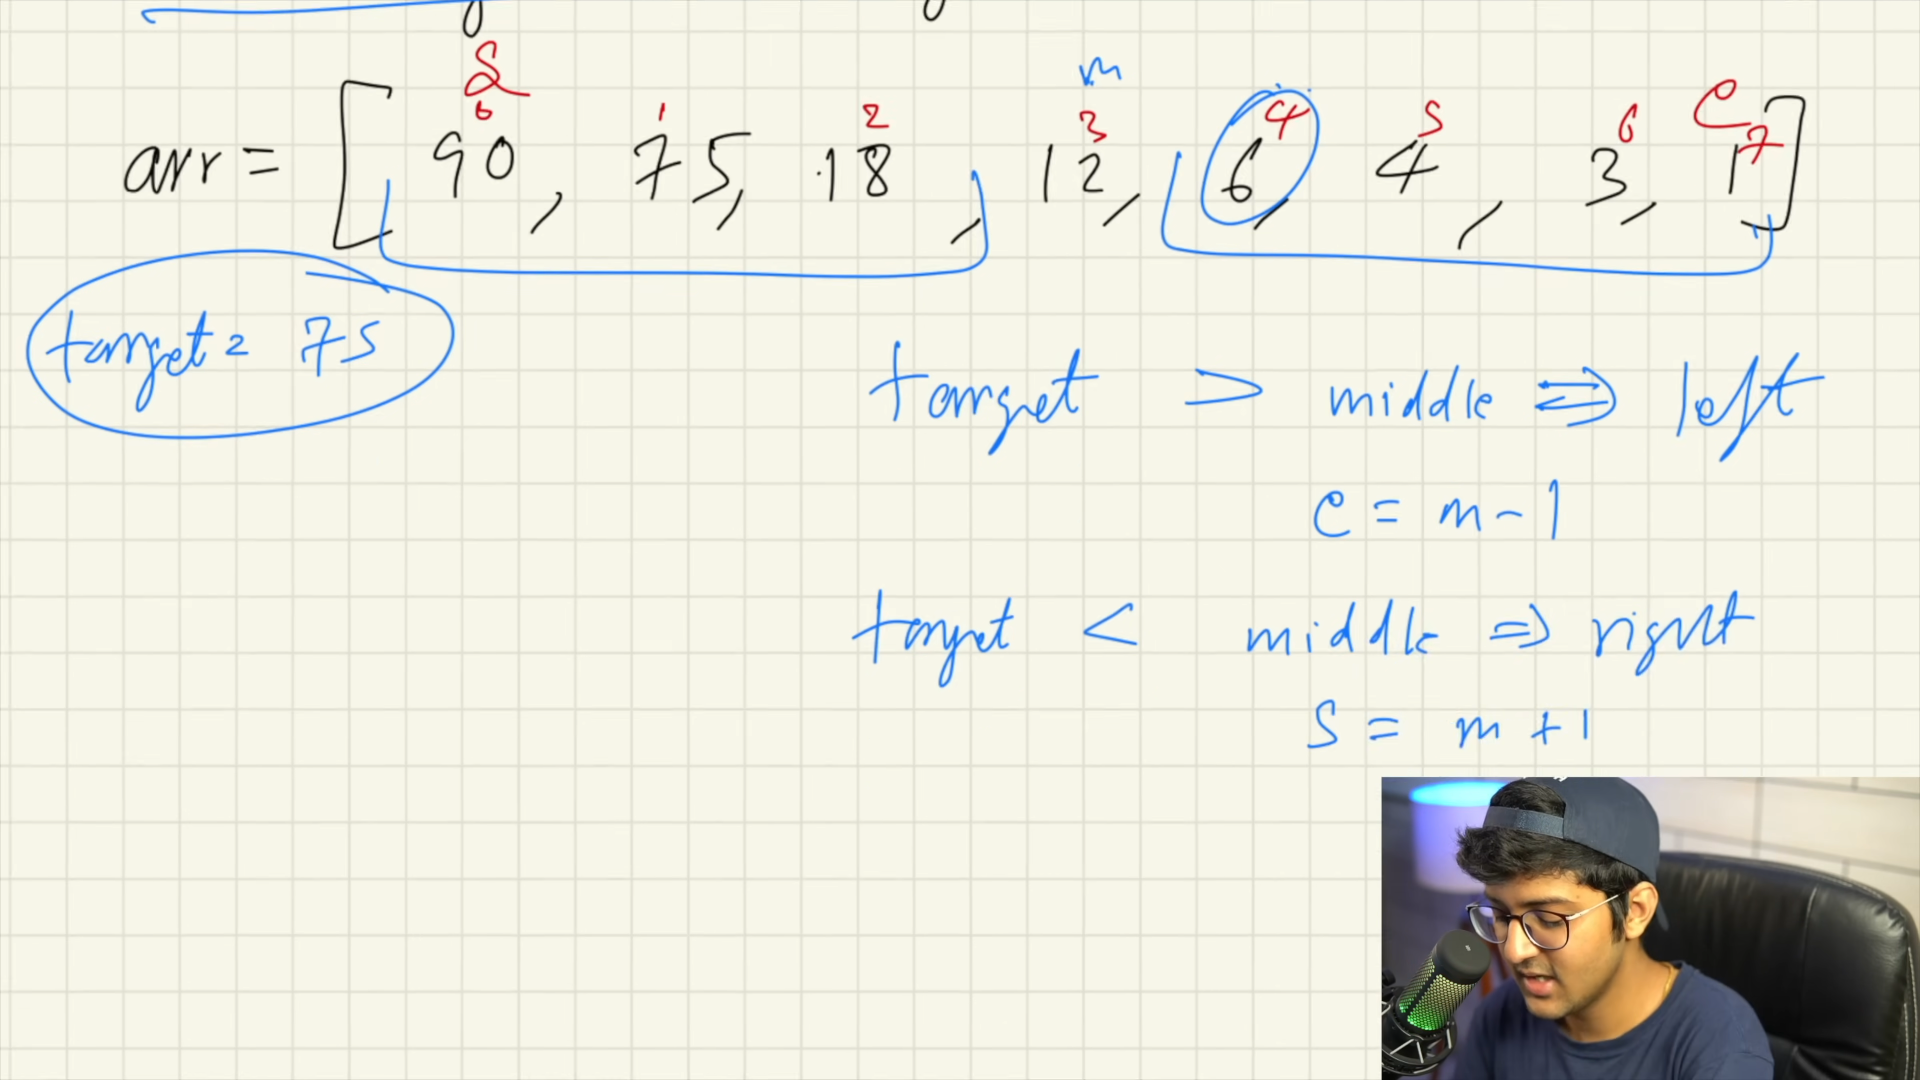 S m
0 1 2 3 4 5 6 e 7
arr = [ 90, 75, 18, 12, 6, 4, 3, 1 ]
target = 75
target > middle ⇒ left
e = m - 1
target < middle ⇒ right
s = m + 1